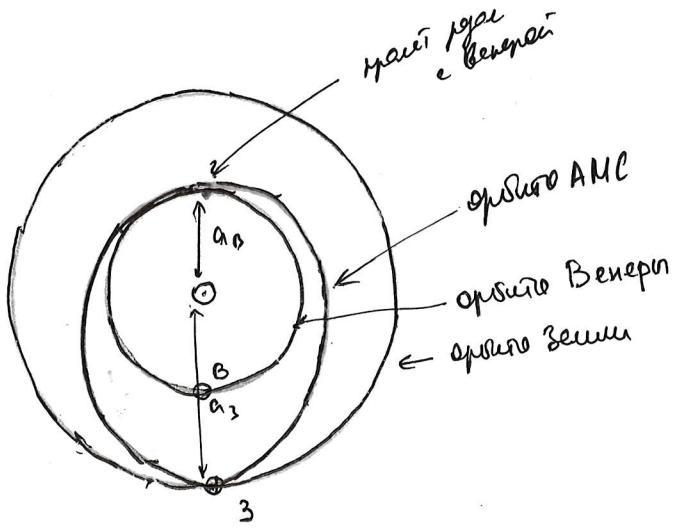 пролёт рядом
с Венерой
2
орбита АМС
aв
орбита Венеры
орбита Земли
В
aз
З